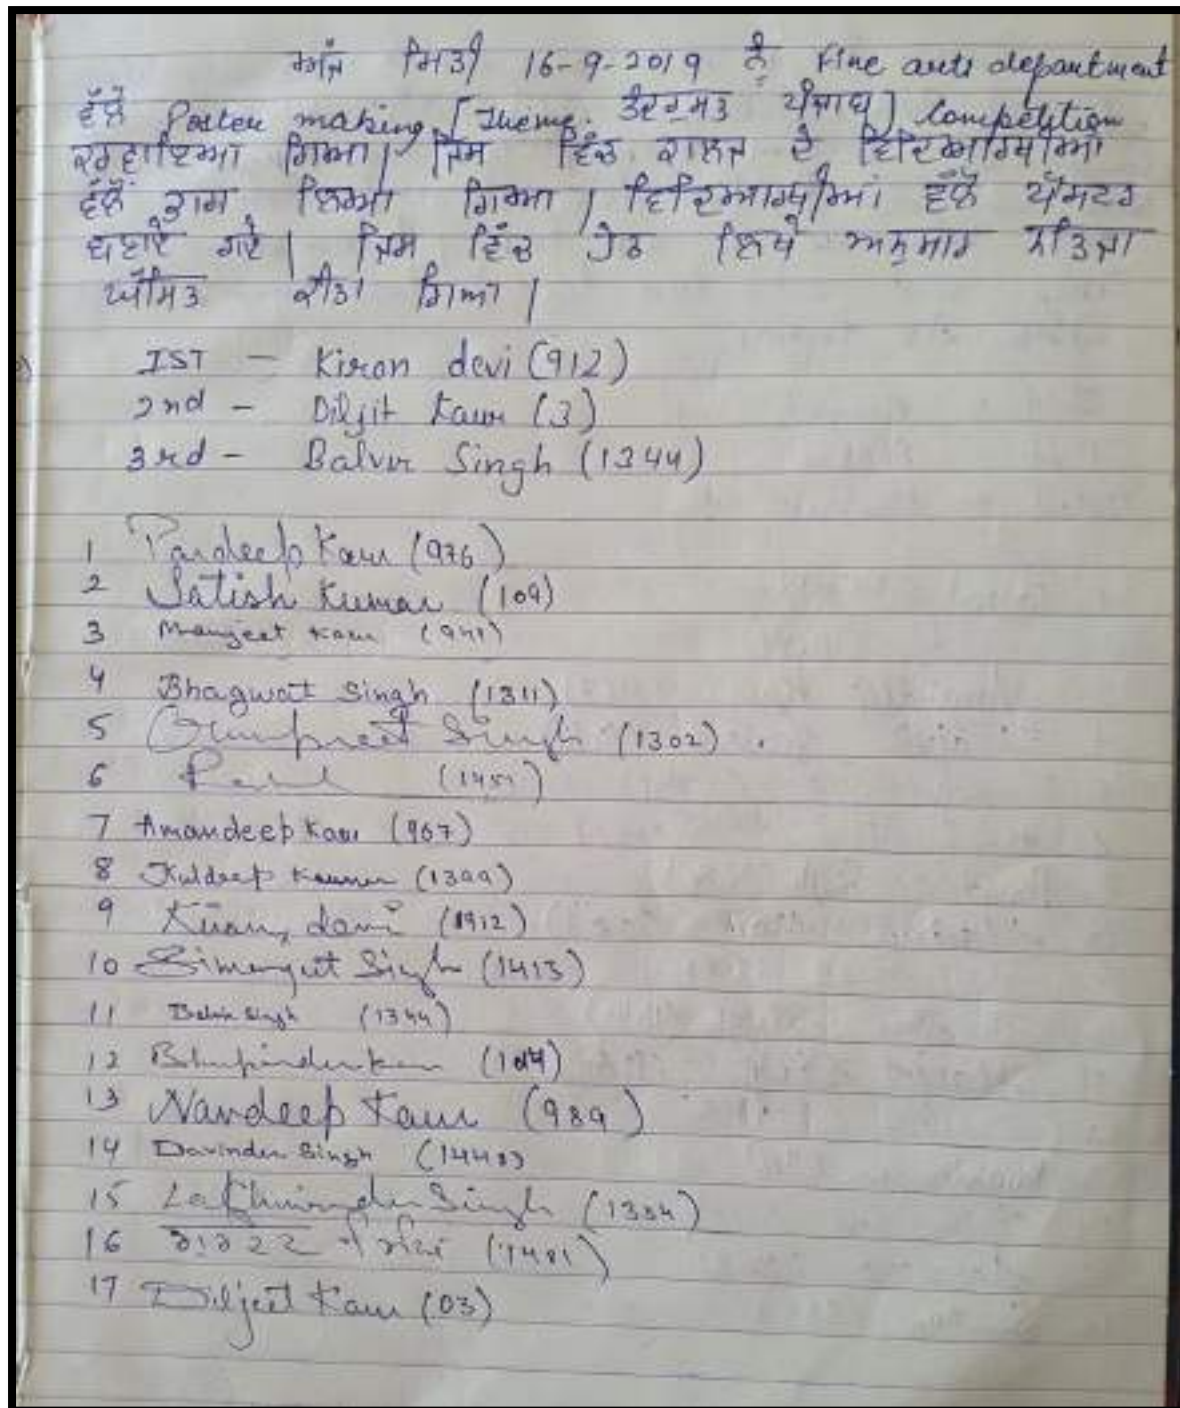 ਅੱਜ ਮਿਤੀ 16-9-2019 ਨੂੰ Fine arts department
ਵੱਲੋਂ Poster making [Theme. ਤੰਦਰੁਸਤ ਪੰਜਾਬ] Competition
ਕਰਵਾਇਆ ਗਿਆ। ਜਿਸ ਵਿੱਚ ਕਾਲਜ ਦੇ ਵਿਦਿਆਰਥੀਆਂ
ਵੱਲੋਂ ਭਾਗ ਲਿਆ ਗਿਆ। ਵਿਦਿਆਰਥੀਆਂ ਵੱਲੋਂ ਪੋਸਟਰ
ਬਣਾਏ ਗਏ। ਜਿਸ ਵਿੱਚ ਹੇਠ ਲਿਖੇ ਅਨੁਸਾਰ ਨਤਿਜਾ
ਘੋਸਿਤ ਕੀਤਾ ਗਿਆ।
IST - Kiran devi (912)
2nd - Diljit Kaur (3)
3rd - Balvir Singh (1344)
1 Pardeep Kaur (976)
2 Satish Kumar (109)
3 Manjeet Kaur
4 Bhagwat Singh (1311)
5 Gurpreet Singh (1302)
6
7 Amandeep Kaur (967)
8 Kuldeep (1399)
9 Kiran devi (1912)
10 Simranjeet Singh (1413)
11 Balvir Singh (1344)
12 Bhupinder Kaur
13 Navdeep Kaur (989)
14 Davinder Singh
15 Lakhwinder Singh (1334)
16 (1481)
17 Diljeet Kaur (03)